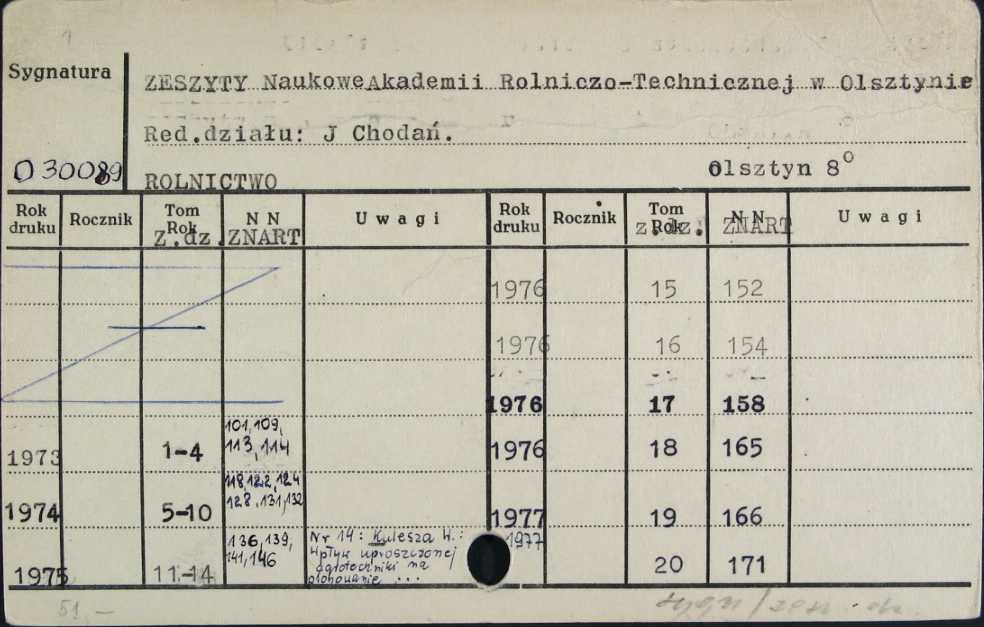 Sygnatura
ZESZYTY NaukoweAkademii Rolniczo-Technicznej w Olsztynie
Red.działu: J Chodań.
O 30089
Olsztyn 8°
ROLNICTWO
Rok druku Rocznik Tom Rok Z.dz. N N ZNART Uwagi Rok druku Rocznik Tom Rok z.dz. N N ZNART Uwagi
1976 15 152
1976 16 154
1976 17 158
1973 1-4 101, 109, 113, 114 1976 18 165
1974 5-10 118, 122, 124 128, 131, 132 1977 19 166
1975 11-14 136, 139, 141, 146 Nr 14: Kulesza W.: Wpływ uproszczonej agrotechniki na plonowanie ... 1977 20 171
51,-